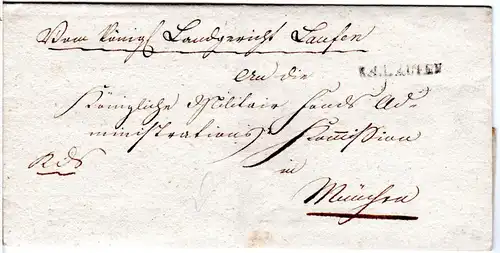 Vom königl Landgericht Laufen
An die
R.4.LAUFEN
Königliche Militair Fonds Ad-
ministrations Commission
RdS
in
München